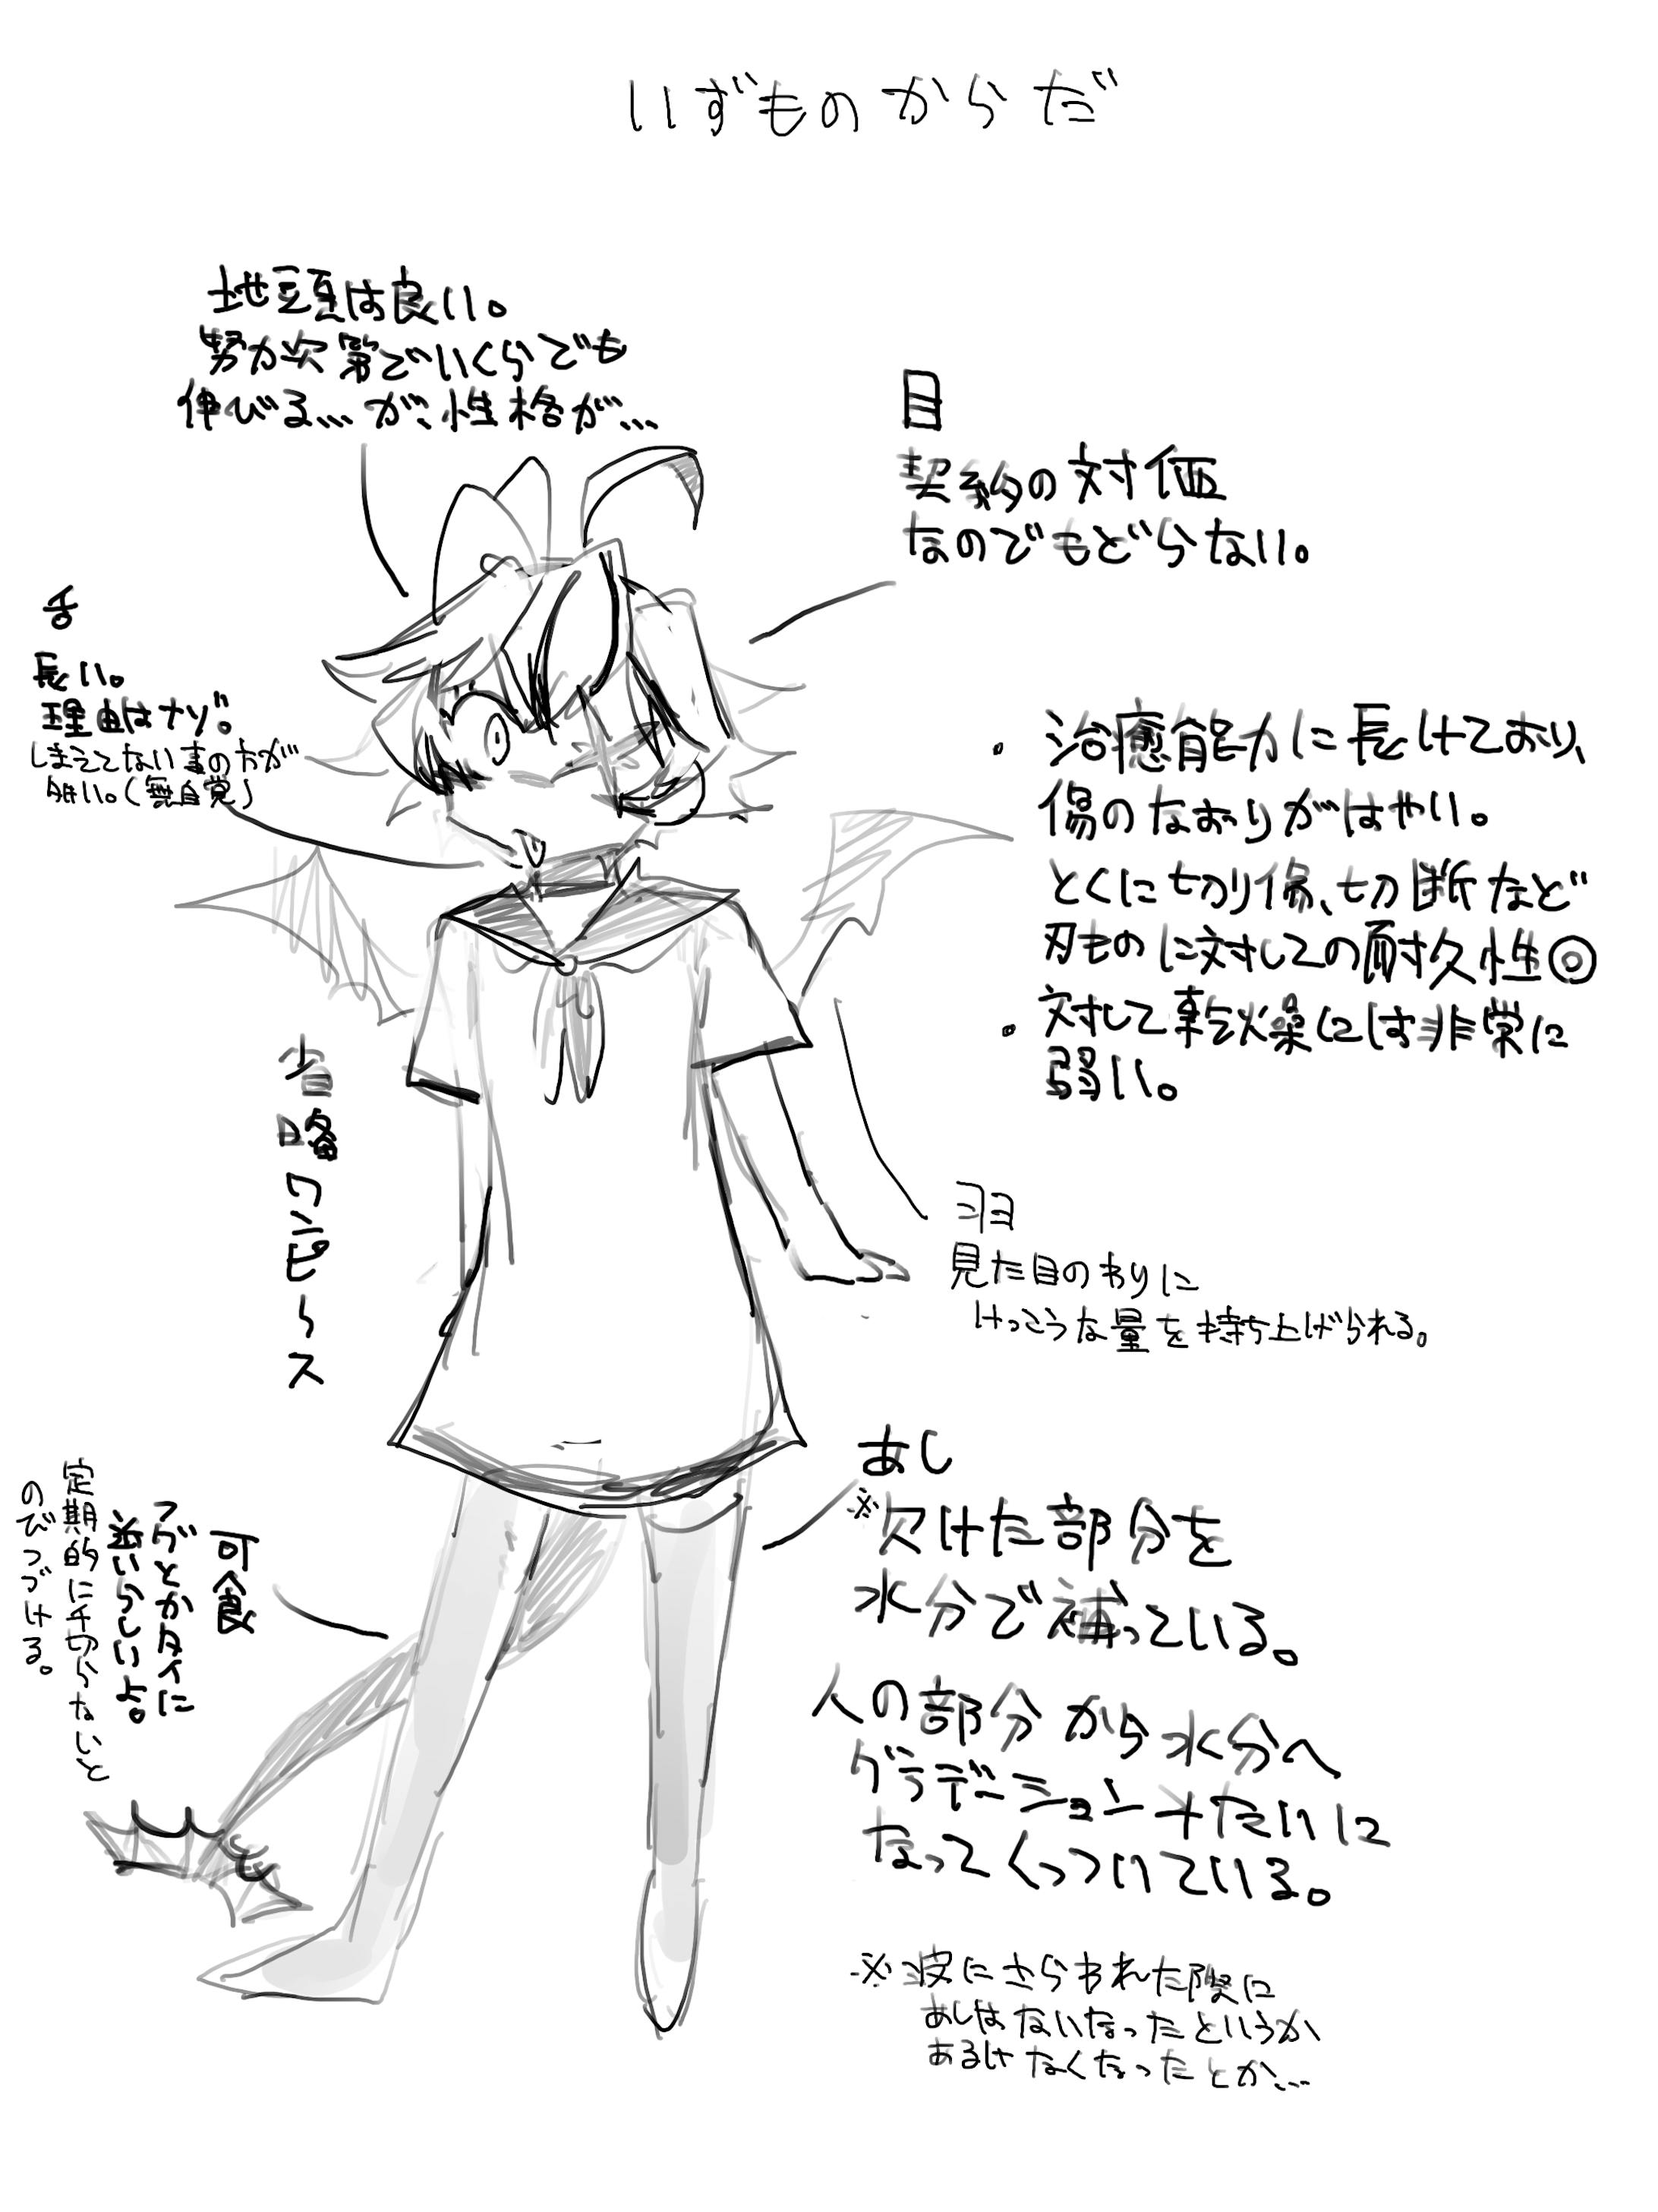 いずものからだ
地頭は良い。
努力次第でいくらでも
伸びる...が、性格が...
目
契約の対価
なのでもどらない。
舌
長い。
理由はナゾ。
しまえてない事の方が
多い。(無自覚)
・治癒能力に長けており、
傷のなおりがはやい。
とくに切り傷、切断など
刃ものに対しての耐久性◎
・対して乾燥には非常に
弱い。
省略ワンピース
羽
見た目のわりに
けっこうな量を持ち上げられる。
あし
※欠けた部分を
水分で補っている。
人の部分から水分へ
グラデーションみたいに
なってくっついている。
※波にさらわれた際に
あしはないなったというか
あるけなくなったとか...
可食
フグとかタイに
近いらしいよ。
定期的に千切らないと
のびつづける。